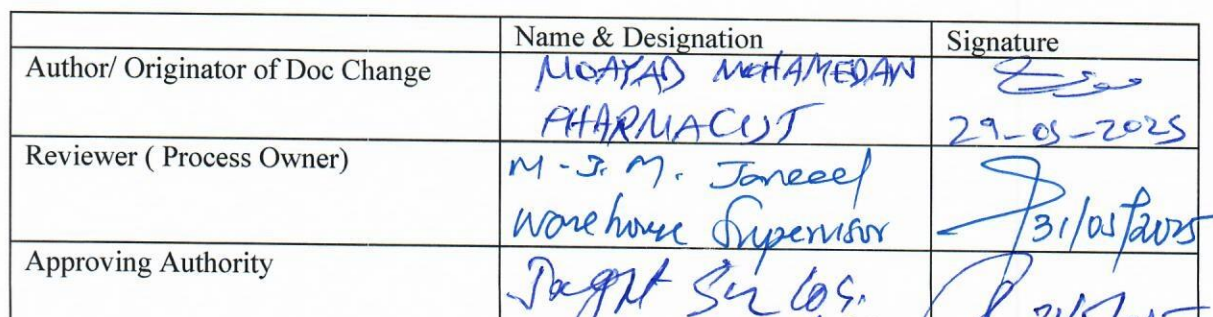 Name & Designation Signature
Author/ Originator of Doc Change MOAYAD MOHAMEDAN
PHARMACIST 29-05-2025
Reviewer ( Process Owner) M.J.M. Jameel
Warehouse Supervisor 31/05/2025
Approving Authority